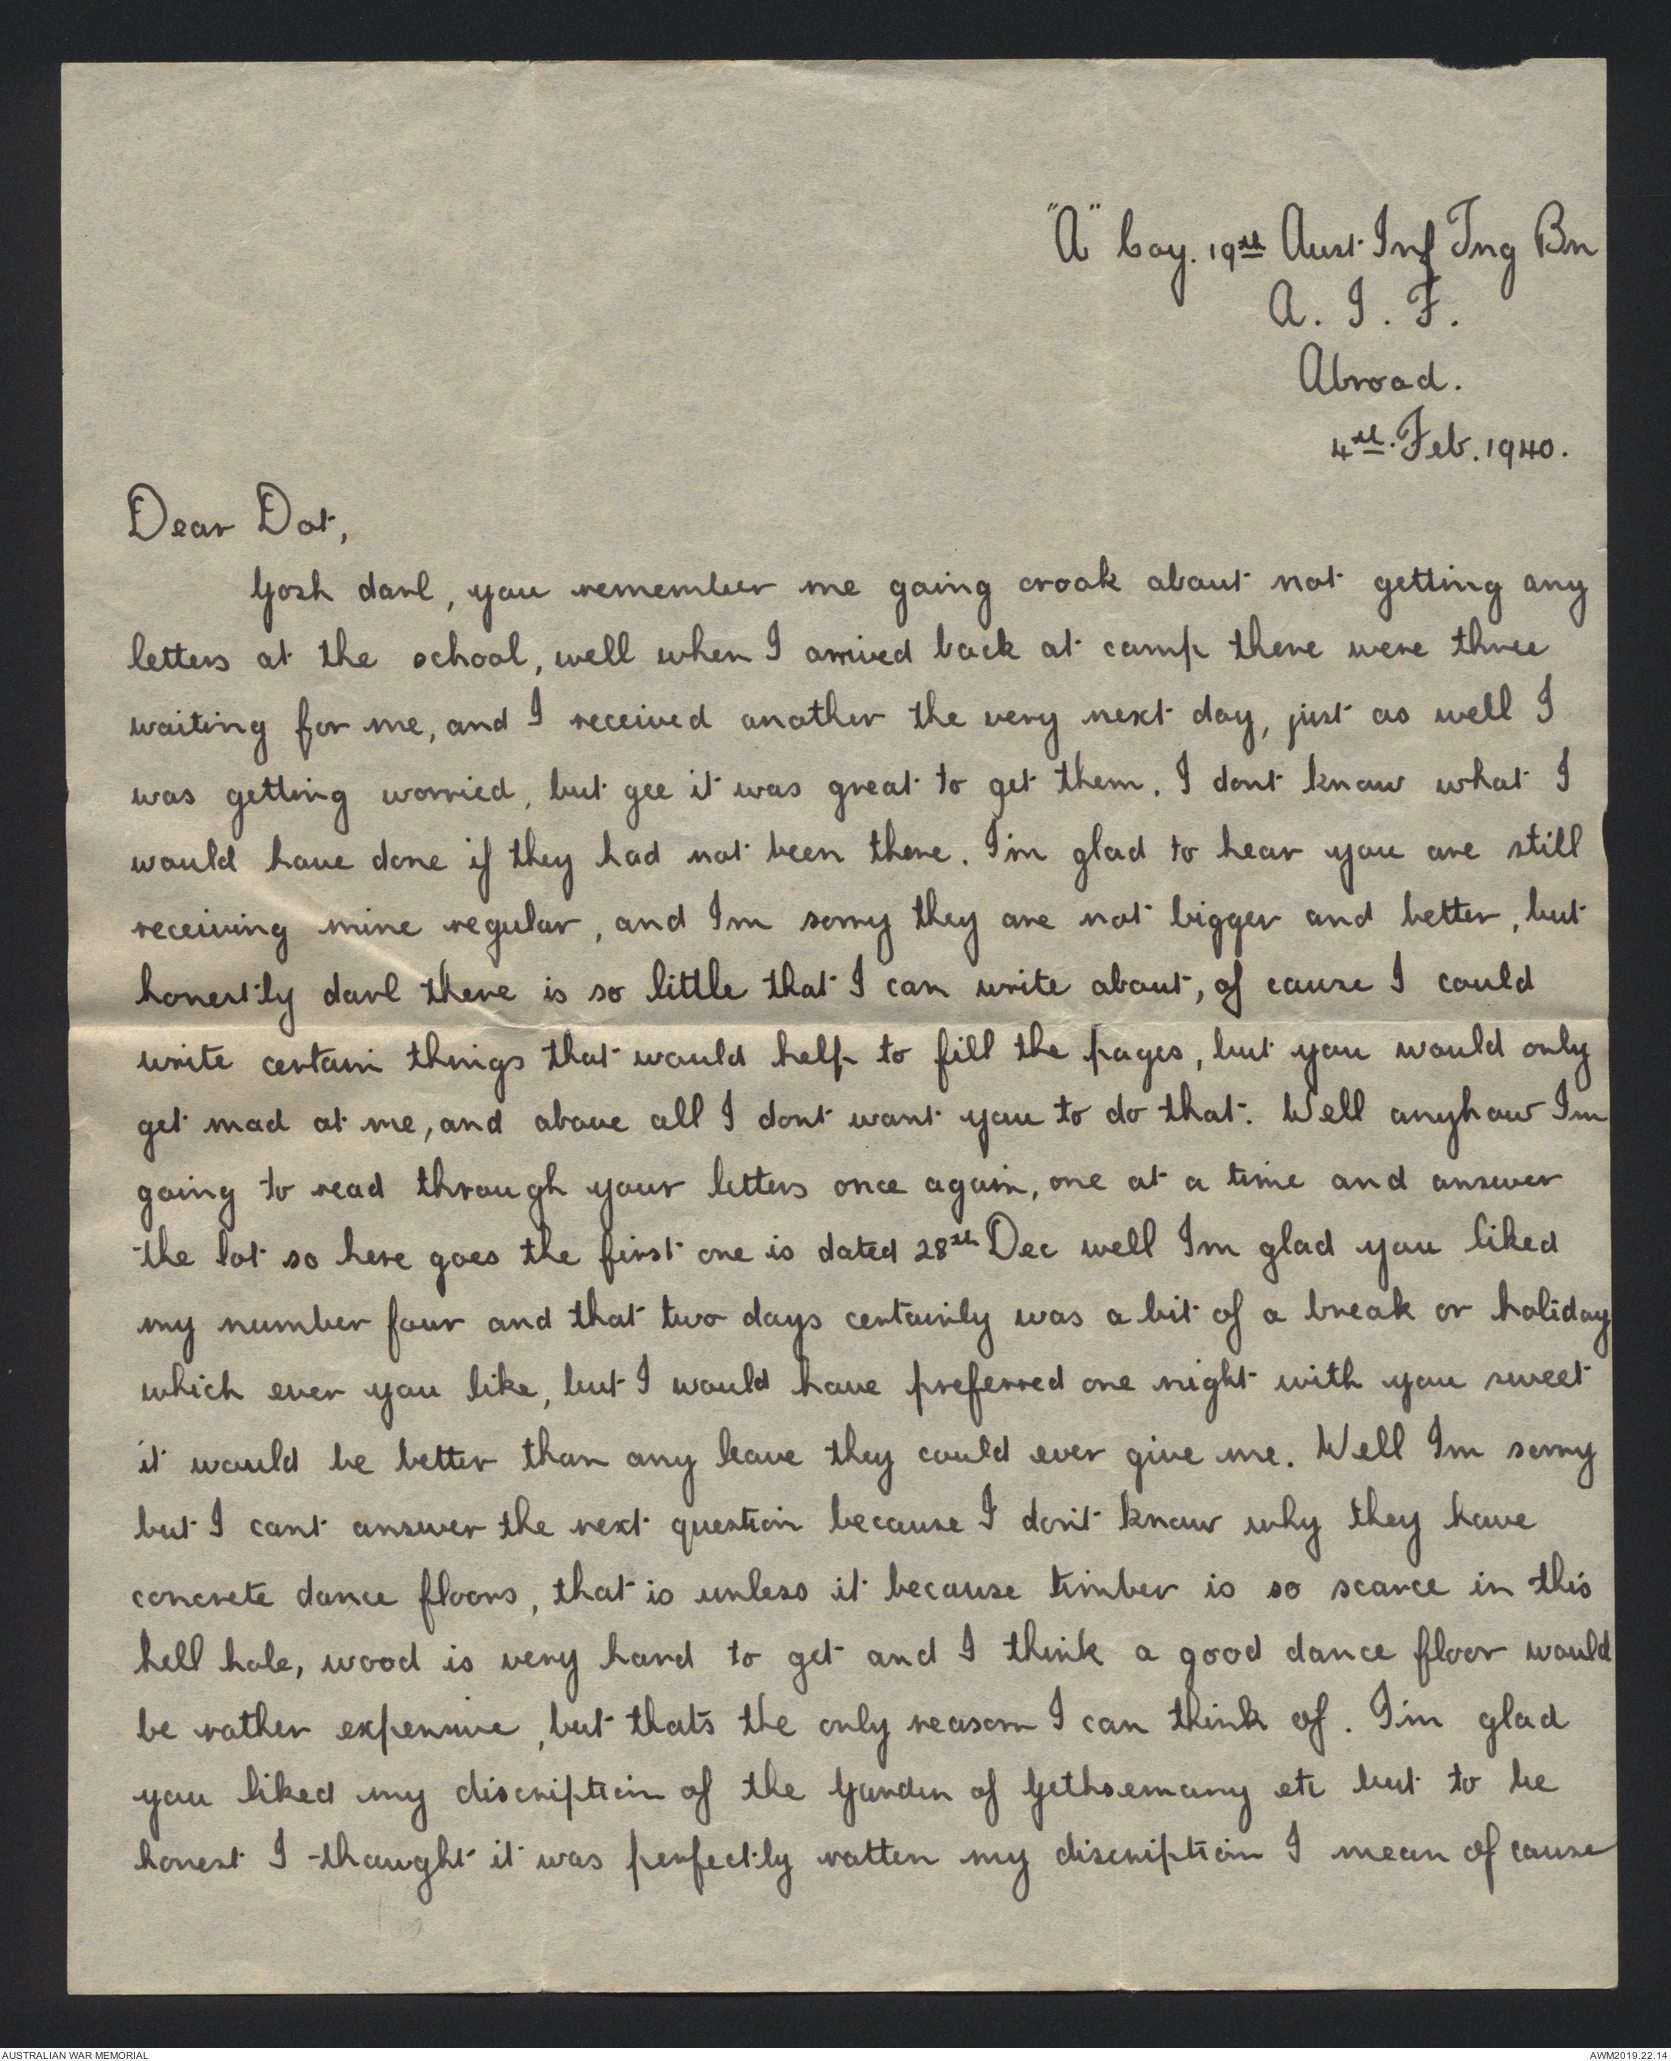 "A" Coy. 19th Aust Inf Tng Bn
A. I. F.
Abroad.
4th. Feb. 1940.
Dear Dot,
Gosh darl, you remember me going crook about not getting any
letters at the school, well when I arrived back at camp there were three
waiting for me, and I received another the very next day, just as well I
was getting worried, but gee it was great to get them. I dont know what I
would have done if they had not been there. I'm glad to hear you are still
receiving mine regular, and Im sorry they are not bigger and better, but
honestly darl there is so little that I can write about, of cause I could
write certain things that would help to fill the pages, but you would only
get mad at me, and above all I dont want you to do that. Well anyhow Im
going to read through your letters once again, one at a time and answer
the lot so here goes the first one is dated 28th Dec well Im glad you liked
my number four and that two days certainly was a bit of a break or holiday
which ever you like, but I would have preferred one night with you sweet
it would be better than any leave they could ever give me. Well Im sorry
but I cant answer the next question because I don't know why they have
concrete dance floors, that is unless it because timber is so scarce in this
hell hole, wood is very hard to get and I think a good dance floor would
be rather expensive, but thats the only reason I can think of. I'm glad
you liked my discription of the Garden of Gethsemany etc but to be
honest I thought it was perfectly rotten my discription I mean of cause
AUSTRALIAN WAR MEMORIAL
AWM2019.22.14